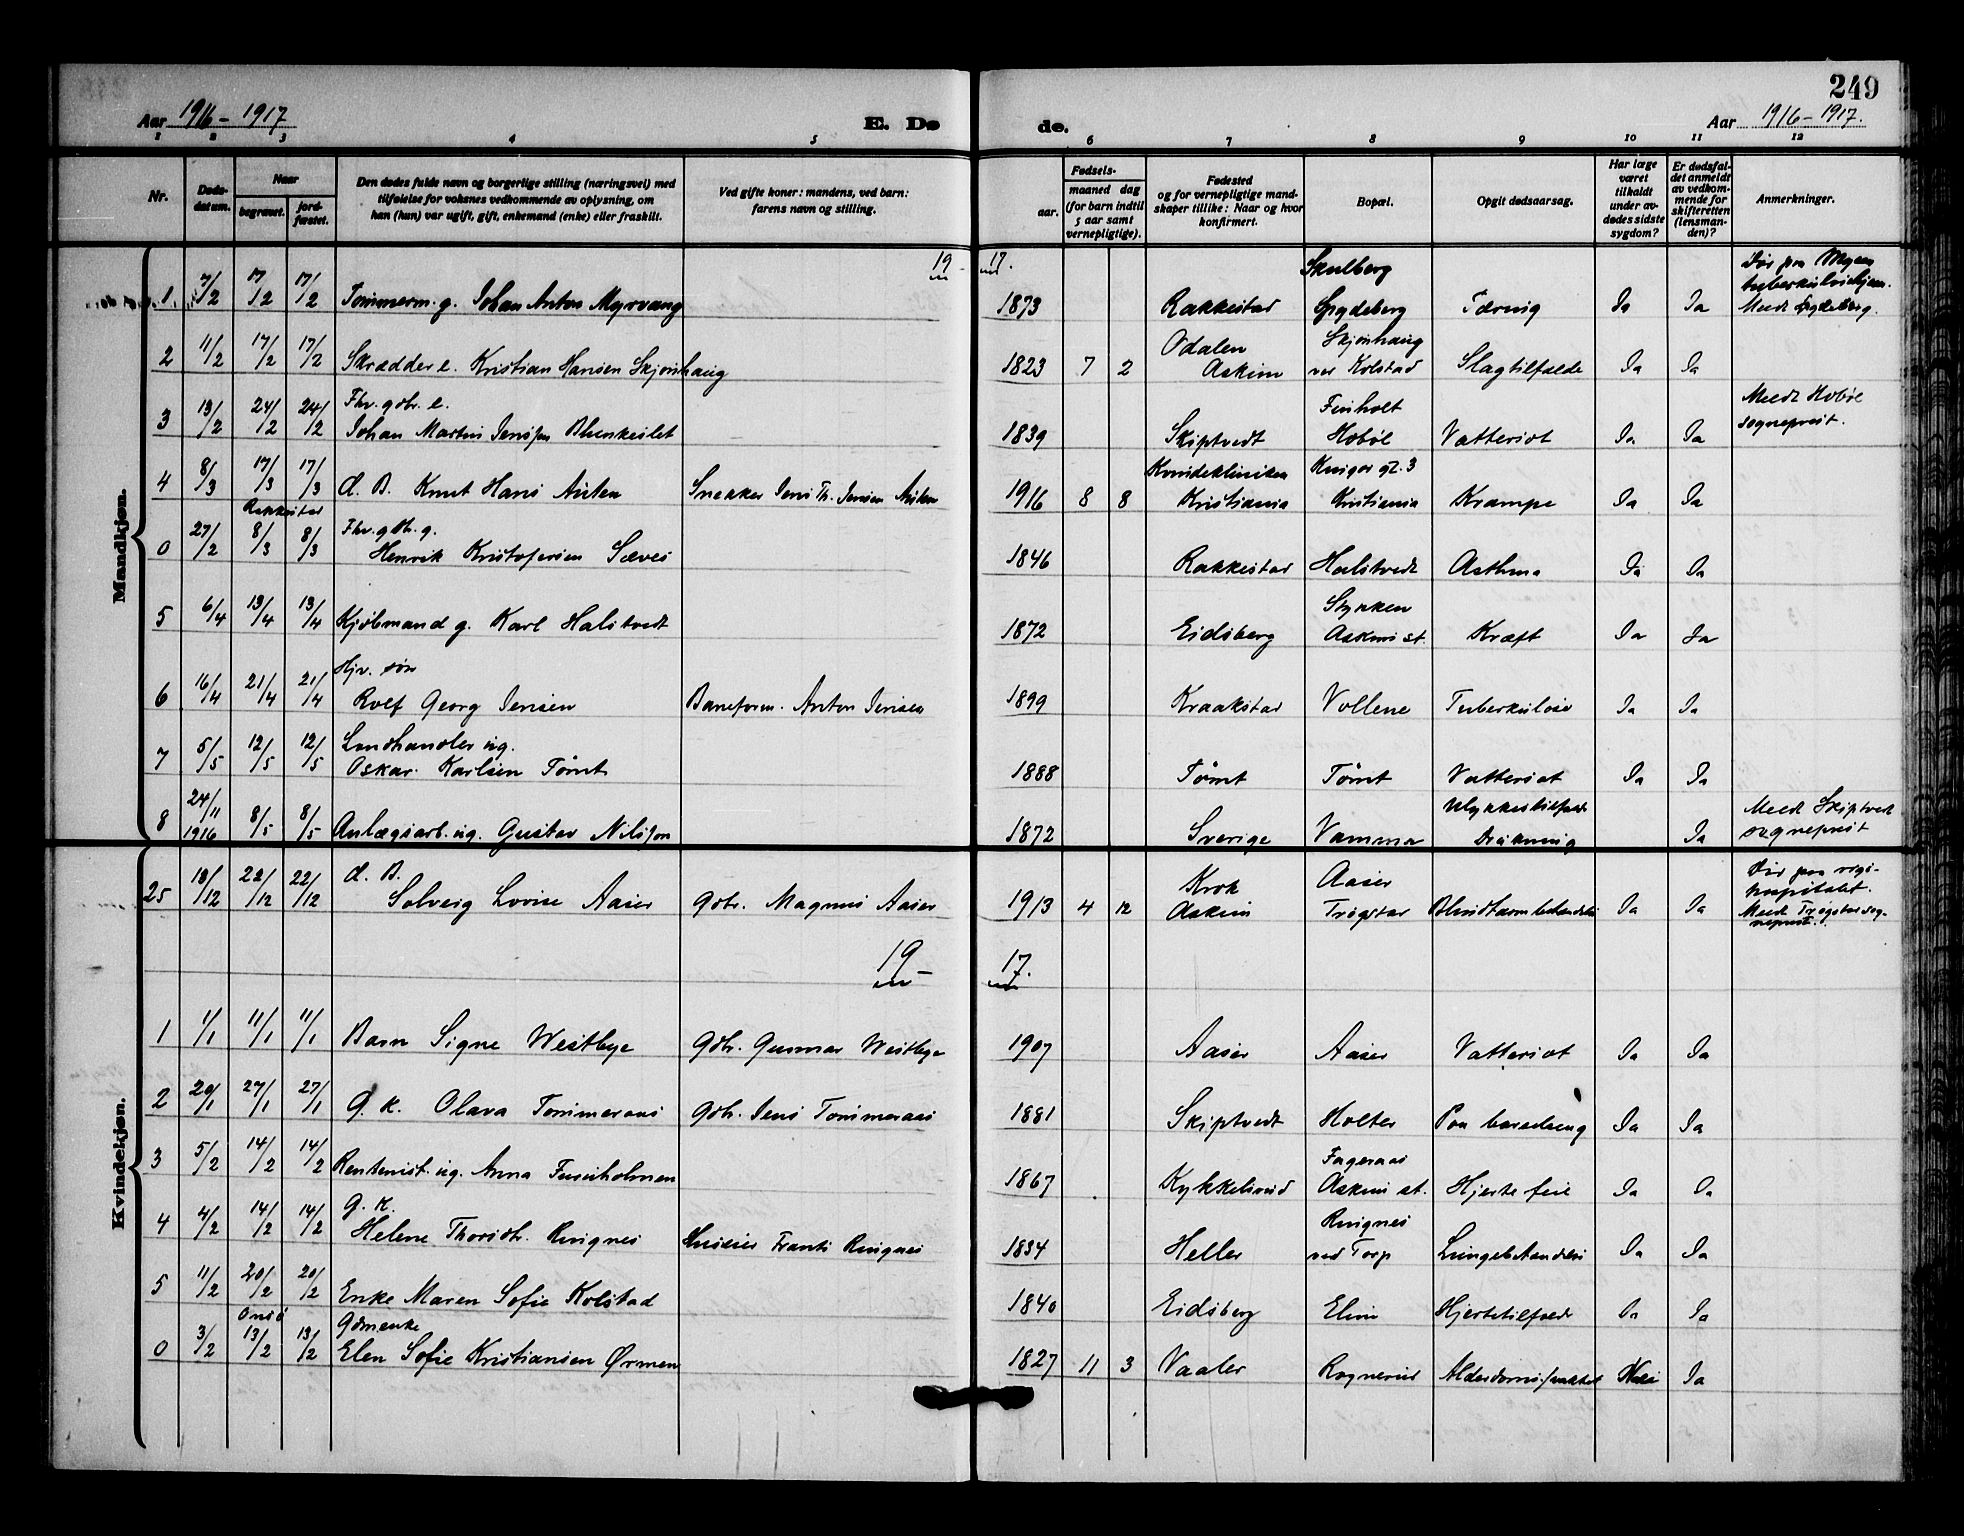 249
Aar 1916 - 1917
E. Dø
de.
Aar 1916 - 1917.
1 2 3 4 5 6 7 8 9 10 11 12
Nr.
Døds-
datum.
Naar
begravet.
jord-
fæstet.
Den dødes fulde navn og borgerlige stilling (næringsvei) med
tilføielse for voksnes vedkommende av oplysning, om
han (hun) var ugift, gift, enkemand (enke) eller fraskilt.
Ved gifte koner: mandens, ved barn:
farens navn og stilling.
Fødsels-
aar.
maaned dag
(for barn indtil
5 aar samt
vernepligtige).
Fødested
og for vernepligtige mand-
skaper tillike: Naar og hvor
konfirmert.
Bopæl.
Opgit dødsaarsag.
Har læge
været
tilkaldt
under av-
dødes sidste
sygdom?
Er dødsfal-
det anmeldt
av vedkom-
mende for
skifteretten
(lensman-
den)?
Anmerkninger.
Mandkjøn.
19 - 17.
Skulberg
1 7/2 17/2 17/2 Tømmerm. g. Johan Anton Myrvang 1873 Rakkestad Spydeberg Tæring Ja Ja Meedt Spydeberg.
Odalen Skjønhaug
2 11/2 17/2 17/2 Skrædder e. Kristian Hansen Skjønhaug 1823 7 2 Askim ved Kolstad Slagtilfælde Ja Ja
Fhv. gdbr. e. Finholt Meedt Hobøl
3 13/2 24/2 24/2 Johan Martin Jensen 1839 Skiptvedt Hobøl Vattersot Ja Ja sogneprest.
Kvindekliniken gt. 3
4 8/3 17/3 17/3 d. B. Knut Hans Snekker Jens Th. Jensen 1916 8 8 Kristiania Kristiania Krampe Ja Ja
Rakkestad Fhv. gdbr. g.
0 27/2 8/3 8/3 Henrik Kristofersen Sæves 1846 Rakkestad Halstvedt Asthma Ja Ja
Stykken
5 6/4 13/4 13/4 Kjøbmand g. Karl Halstvedt 1872 Eidsberg Askim st. Kræft Ja Ja
Hjv. søn
6 16/4 21/4 21/4 Rolf Georg Jensen Baneform. Anton Jensen 1899 Kraakstad Vollene Tuberkulose Ja Ja
Landhandler ug.
7 5/5 12/5 12/5 Oskar Karlsen Tømt 1888 Tømt Tømt Vattersot Ja Ja
24/11 Ulykkestilfælde Meedt Skiptvedt
8 1916 8/5 8/5 Anlægsarb. ug. Gustav Nilsson 1872 Sverige Vamma Drukning Ja sogneprest
Kvindekjøn.
d. B. Krok Aaser Død paa rigs-
hospitalet.
25 18/12 22/12 22/12 Solveig Lovise Aaser Gdbr. Magnus Aaser 1913 4 12 Askim Trøgstad Blindtarmbetændelse Ja Ja Meedt Trøgstad sog-
neprest.
19 - 17.
1 1/1 11/1 11/1 Barn Signe Westbye Gdbr. Gunnar Westbye 1907 Aaser Aaser Vattersot Ja Ja
2 20/1 27/1 27/1 G. K. Olava Tømmeraas Gdbr. Jens Tømmeraas 1881 Skiptvedt Holter Paa barselseng Ja Ja
Fageraas
3 5/2 14/2 14/2 Rentenist. ug. Anna Fusenholmen 1867 Kykkelsrud Askim st. Hjertefeil Ja Ja
G. K. Ringnes
4 4/2 14/2 14/2 Helene Thorsdtr. Ringnes Huseier Frants Ringnes 1834 Heller ved Torp Lungebetændelse Ja Ja
5 11/2 20/2 20/2 Enke Maren Sofie Kolstad 1840 Eidsberg Elvin Hjertetilfælde Ja Ja
Onsø Gdmenke
0 3/2 13/2 13/2 Elen Sofie Kristiansen Ørmen 1827 11 3 Vaaler Rognerud Alderdomssvakhet Nei Ja